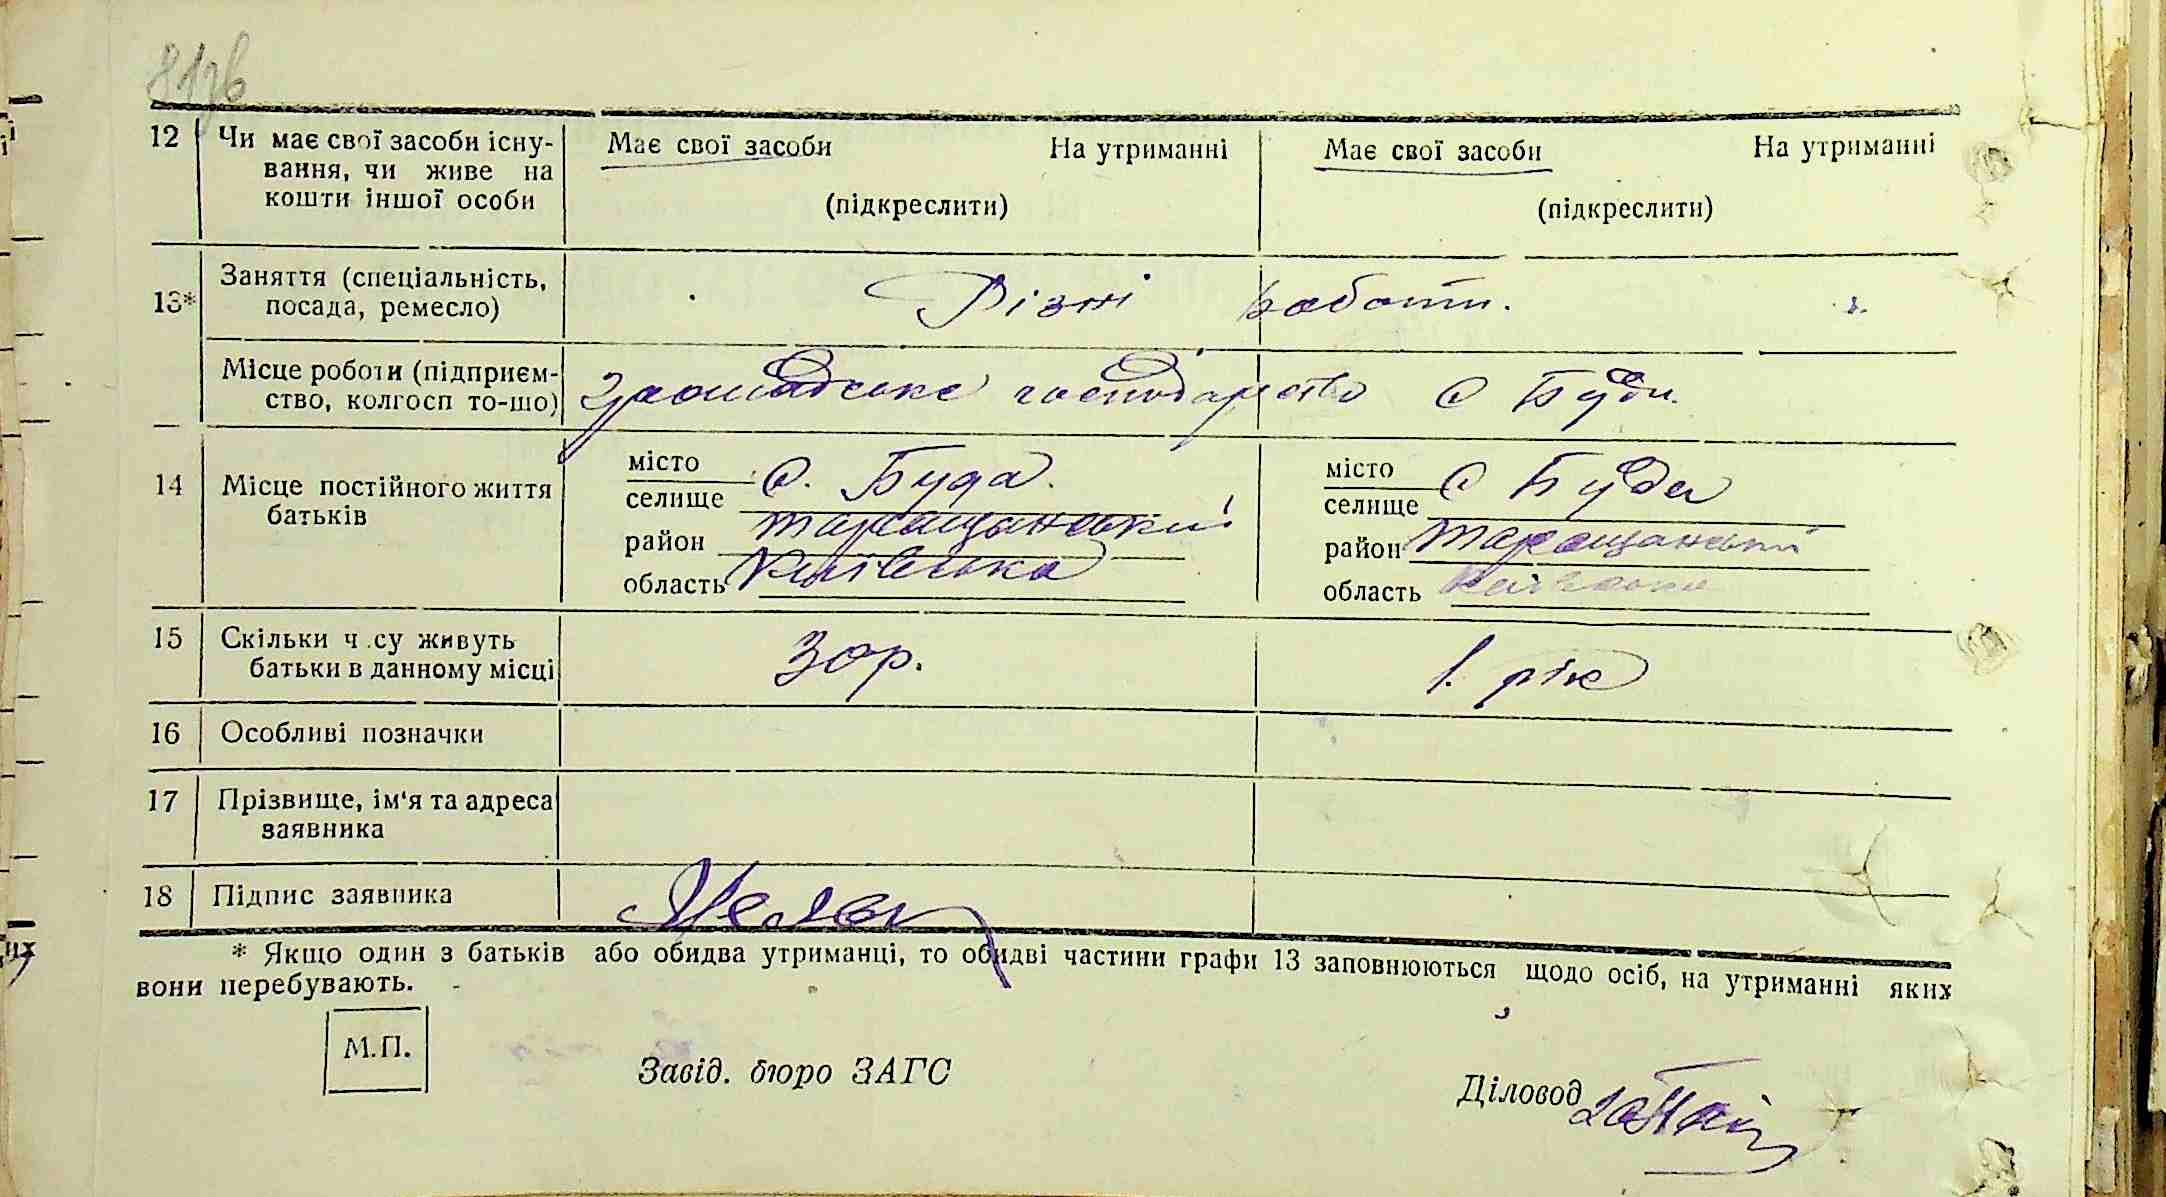 81зв
12 Чи має свої засоби існу- Має свої засоби На утриманні Має свої засоби На утриманні
вання, чи живе на
кошти іншої особи (підкреслити) (підкреслити)
13* Заняття (спеціальність,
посада, ремесло) Різні работи.
Місце роботи (підприєм-
ство, колгосп то-що) громадське господарство с Буди.
14 Місце постійного життя батьків
місто с. Буда. місто с Буда
селище селище
район таращанський район таращанський
область Київська область Київська
15 Скільки ч.су живуть
батьки в данному місці 30р. 1. рік
16 Особливі позначки
17 Прізвище, ім'я та адреса
заявника
18 Підпис заявника
* Якщо один з батьків або обидва утриманці, то обидві частини графи 13 заповнюються щодо осіб, на утриманні яких
вони перебувають.
М.П.
Завід. бюро ЗАГС
Діловод